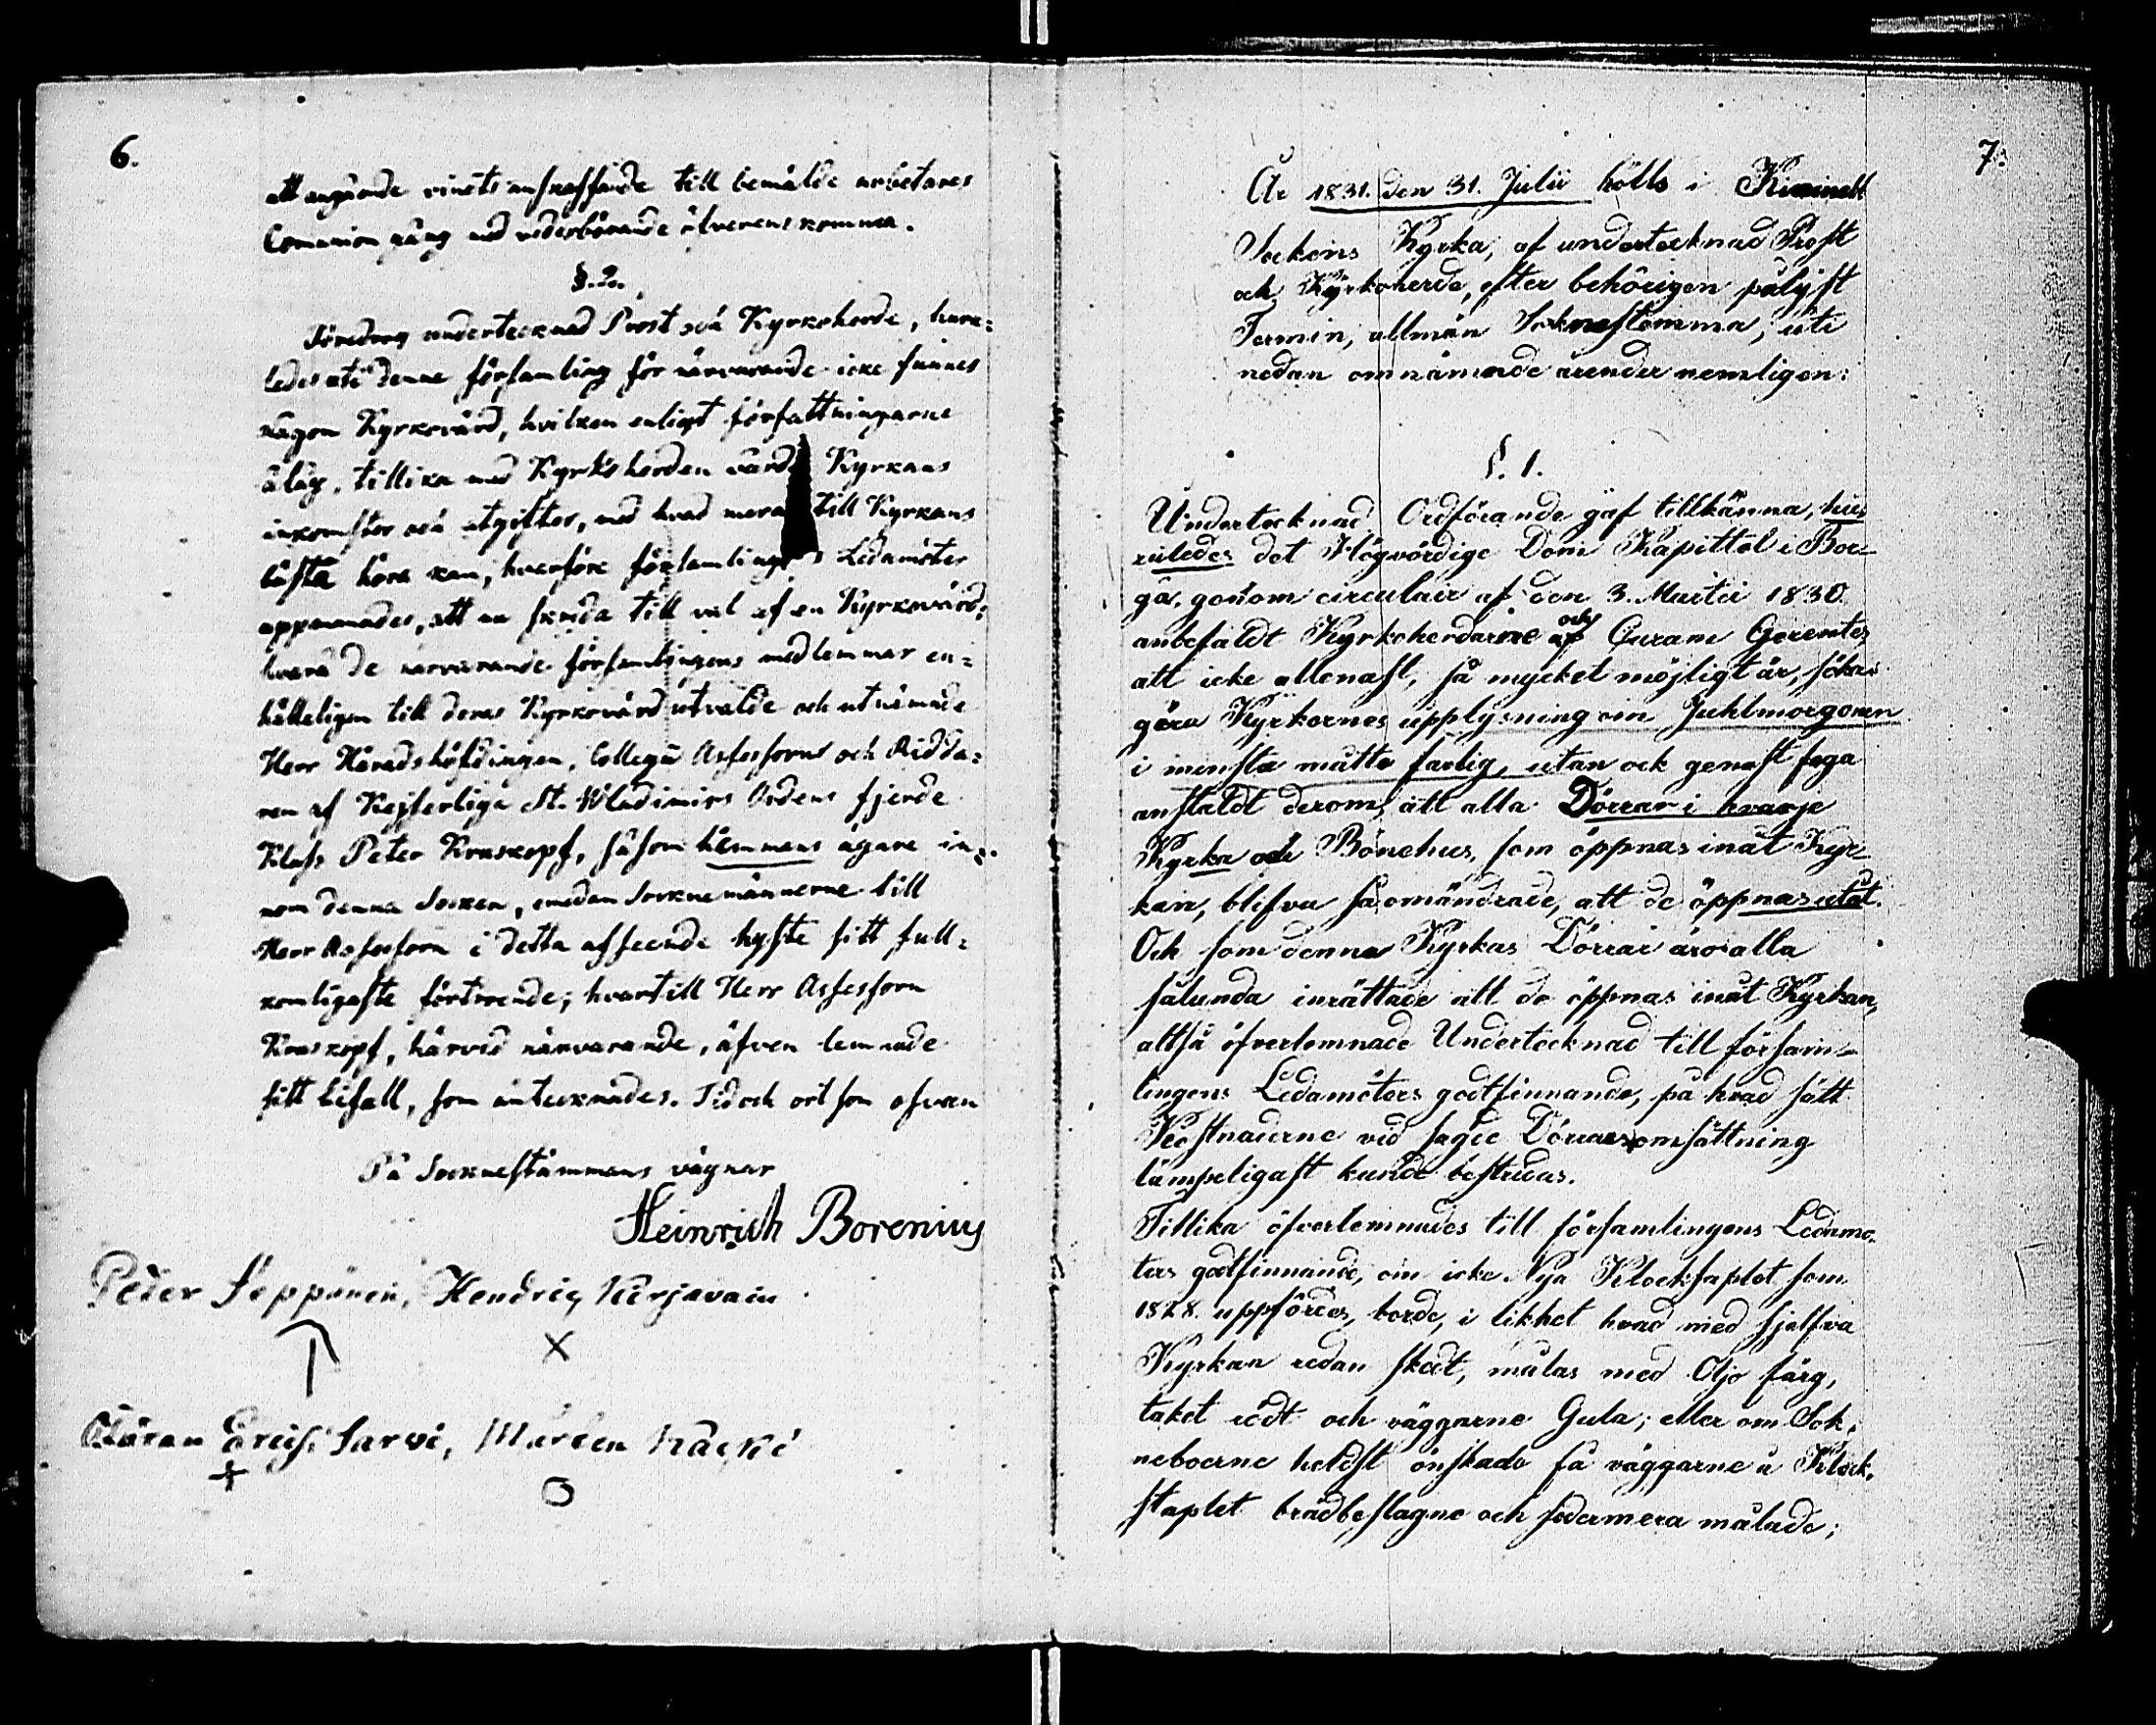 6.
att angående vinets anskaffande till bemälde arbetares
Comunion gång med vederbörande öfverens komma.
§. 2.
Föredrog undertecknad Prost och Kyrkoherde, huru=
ledes uti denne församling för närvarande icke finnes
någon Kyrkovärd, hvilken enligt författningarne
ålåg, tillika med Kyrkoherden vårda Kyrkans
inkomster och utgifter, med hvad mera till Kyrkans
bästa höra kan; hvarföre församlingens Ledamöter
uppmanades, att nu skrida till val af en Kyrkovärd;
hvarå de närvarande församlingens medlemmar en=
hälleligen till deras Kyrkovärd utvalde och utnämnde
Herr Häradshöfdingen, Collegii Assessorn och Ridda=
ren af Kejserliga St. Wladimirs Ordens fjerde
Klass Peter Kruskopf, såsom hemmans ägare in=
nom denna Socken, emedan Socknemännerne till
Herr Assessorn i detta afseende hyste sitt full=
komligaste förtroende; hvartill Herr Assessorn
Kruskopf, härvid närvarande, äfven lemnade
sitt bifall, som antecknades. Tid och ort som ofvan
På Socknestämmans vägnar
Heinrich Borenius
Peter Seppänen, Hendric Karjavain
X
Göran Erichs. Sarvi, Mårten Käcki
+ O
7.
År 1831. den 31. Julii hölls i Kivinebb
Sockens Kyrka, af undertecknad Prost
och Kyrkoherde, efter behörigen pålyst
Termin, allmän Soknestemma, uti
nedan omnämnde ärender nemligen:
§. 1.
Undertecknad Ordförande gaf tillkänna, hu=
ruledes det Högvördige Dom Kapittel i Bor=
gå, genom circulair af den 3. Martii 1830.
anbefaldt Kyrkoherdarne och Curam Gerentes
att icke allenast, så mycket möjligt är, söka
göra Kyrkornes upplysning om Juhlmorgonen
i minsta måtto farlig, utan ock genast foga
anstaldt derom, att alla Dörrar i hvarje
Kyrka och Bönehus, som öppnas inåt Kyr=
kan, blifva så omändrade, att de öppnas utåt.
Och som denna Kyrkas Dörrar äro alla
sålunda inrättade att de öppnas inåt Kyrkan,
altså öfverlemnade Undertecknad till försam=
lingens Ledamöters godtfinnande, på hvad sätt
Kostnaderne vid sagde Dörrars omsättning
lämpeligast kunde bestridas.
Tillika öfverlemnades till församlingens Ledamö=
ters godtfinnande, om icke Nya Klockstaplet som
1828. uppfördes, borde, i likhet hvad med sjelfva
Kyrkan redan skedt, målas med Oljo färg,
taket rödt och väggarne Gula; eller om Sok=
neboerne heldst önskade få väggarne å Klock=
staplet brädbeslagne och sedermera målade;